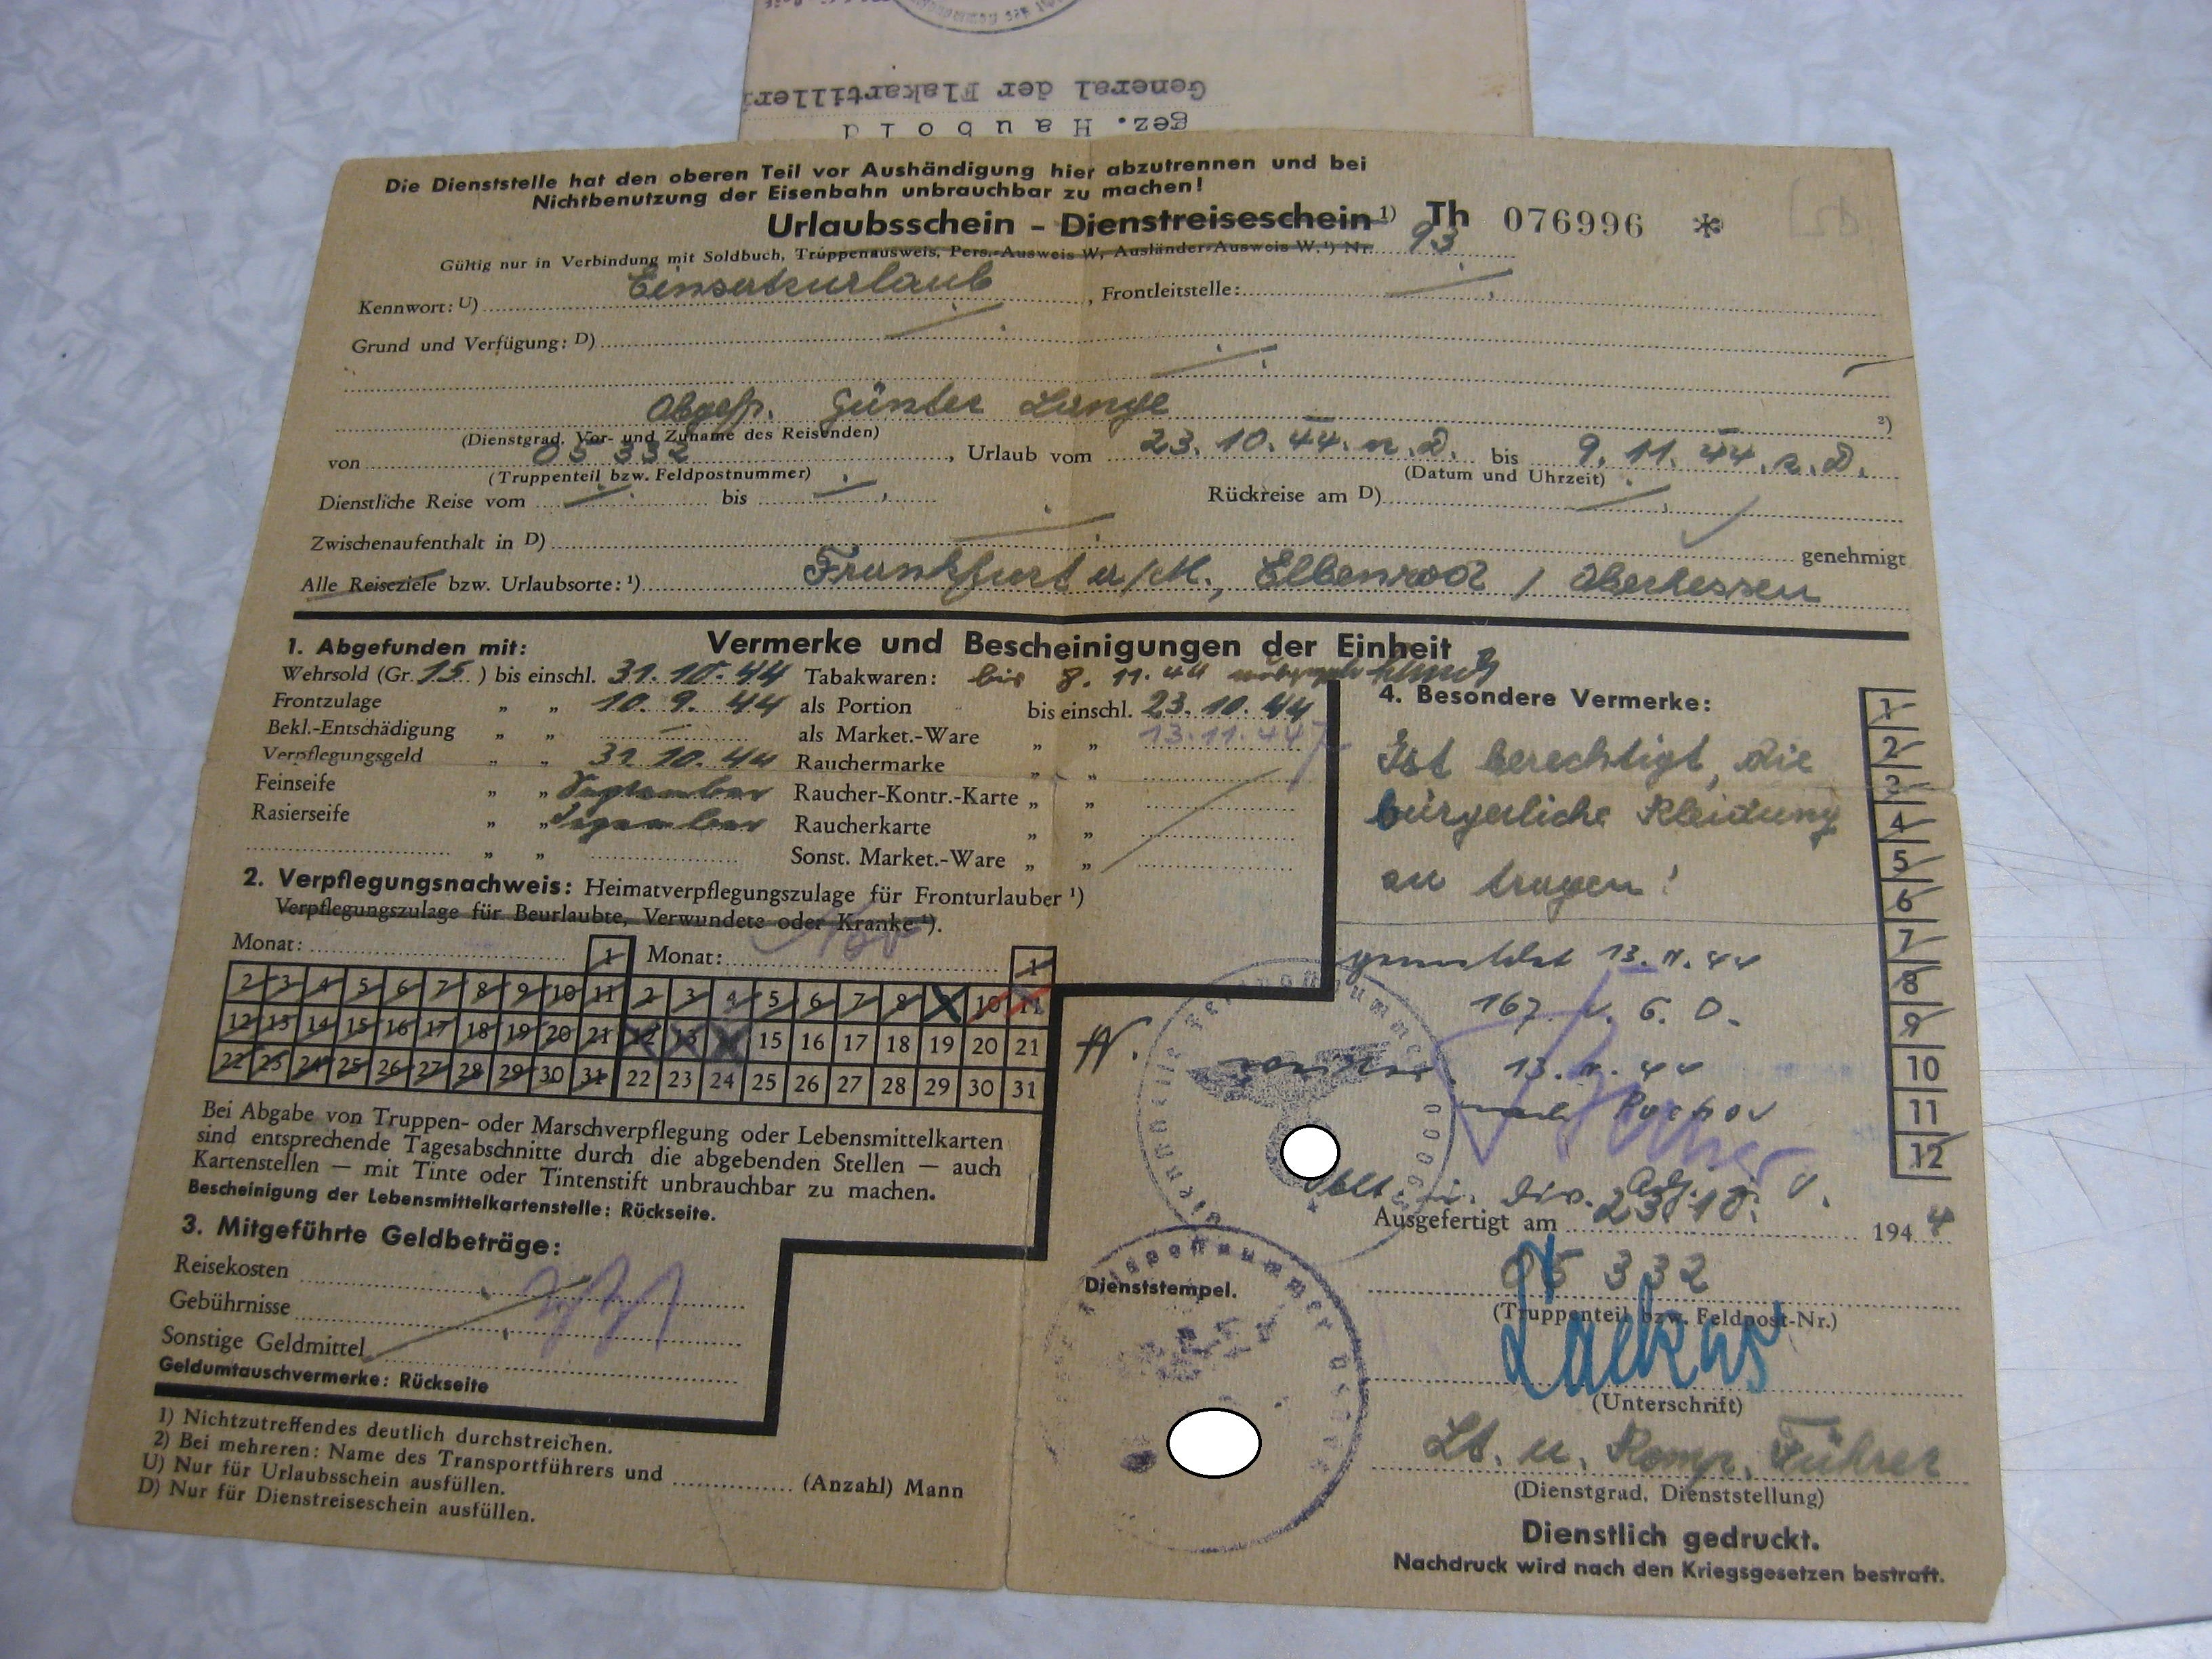 General der Flakartilleri
gez. Haubold
Die Dienststelle hat den oberen Teil vor Aushändigung hier abzutrennen und bei
Nichtbenutzung der Eisenbahn unbrauchbar zu machen!
Urlaubsschein – Dienstreiseschein ¹) Th 076996 *
Gültig nur in Verbindung mit Soldbuch, Truppenausweis, Pers.-Ausweis W, Ausländer-Ausweis W,¹) Nr. 93
Kennwort: U) Einsatzurlaub, Frontleitstelle:
Grund und Verfügung: D)
Obgefr. Günter Lange ²)
(Dienstgrad, Vor- und Zuname des Reisenden)
von 05 332, Urlaub vom 23.10.44. n.D. bis 9.11.44. n.D.
(Truppenteil bzw. Feldpostnummer) (Datum und Uhrzeit)
Dienstliche Reise vom bis Rückreise am D)
Zwischenaufenthalt in D) genehmigt
Alle Reiseziele bzw. Urlaubsorte: ¹) Frankfurt a/M., Elbenrod / Oberhessen
Vermerke und Bescheinigungen der Einheit
1. Abgefunden mit:
Wehrsold (Gr. 15) bis einschl. 31.10.44 Tabakwaren: bis 8.11.44
Frontzulage „ „ 10.9.44 als Portion bis einschl. 23.10.44
Bekl.-Entschädigung „ „ als Market.-Ware „ „ 13.11.44
Verpflegungsgeld „ „ 31.10.44 Rauchermarke „ „
Feinseife „ „ September Raucher-Kontr.-Karte „ „
Rasierseife „ „ September Raucherkarte „ „
„ „ Sonst. Market.-Ware „ „
4. Besondere Vermerke:
Ist berechtigt, die
bürgerliche Kleidung
zu tragen!
gemeldet 13.11.44
167. V. G. D.
13.11.44
1
2
3
4
5
6
7
8
9
10
11
12
2. Verpflegungsnachweis: Heimatverpflegungszulage für Fronturlauber ¹)
Verpflegungszulage für Beurlaubte, Verwundete oder Kranke ¹).
Monat: 1 Monat: 1
2 3 4 5 6 7 8 9 10 11 2 3 4 5 6 7 8 9 10 11
12 13 14 15 16 17 18 19 20 21 12 13 14 15 16 17 18 19 20 21
22 23 24 25 26 27 28 29 30 31 22 23 24 25 26 27 28 29 30 31
Bei Abgabe von Truppen- oder Marschverpflegung oder Lebensmittelkarten
sind entsprechende Tagesabschnitte durch die abgebenden Stellen — auch
Kartenstellen — mit Tinte oder Tintenstift unbrauchbar zu machen.
Bescheinigung der Lebensmittelkartenstelle: Rückseite.
3. Mitgeführte Geldbeträge:
Reisekosten
Gebührnisse
Sonstige Geldmittel
Geldumtauschvermerke: Rückseite
Ausgefertigt am 23.10. 194 4
Dienststempel.
05 332
(Truppenteil bzw. Feldpost-Nr.)
(Unterschrift)
Lt. u. Komp. Führer
(Dienstgrad, Dienststellung)
1) Nichtzutreffendes deutlich durchstreichen.
2) Bei mehreren: Name des Transportführers und (Anzahl) Mann
U) Nur für Urlaubsschein ausfüllen.
D) Nur für Dienstreiseschein ausfüllen.
Dienstlich gedruckt.
Nachdruck wird nach den Kriegsgesetzen bestraft.